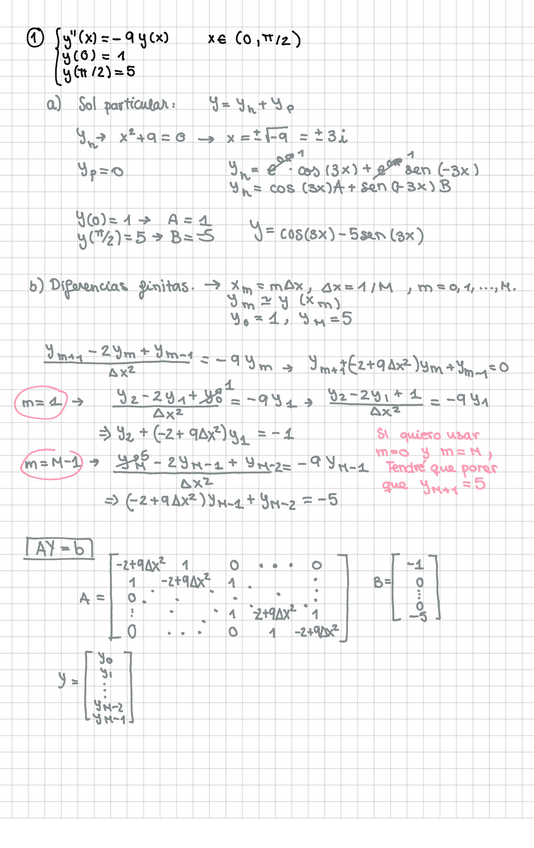 ① { y''(x) = -9 y(x)    x ∈ (0, π/2)
y(0) = 1
y(π/2) = 5
a) Sol particular:    y = y_h + y_p
y_h → x² + 9 = 0 → x = ±√-9 = ±3i
y_p = 0    y_h = e^{0x} · cos(3x) + e^{0x} sen(-3x)
y_h = cos(3x)A + sen(-3x)B
y(0) = 1 → A = 1
y(π/2) = 5 → B = -5    y = cos(3x) - 5sen(3x)
b) Diferencias finitas. → x_m = mΔx, Δx = 1/M, m = 0, 1, ..., M.
y_m ≃ y(x_m)
y_0 = 1, y_M = 5
(y_{m+1} - 2y_m + y_{m-1})/Δx² = -9y_m → y_{m+1} + (-2+9Δx²)y_m + y_{m-1} = 0
m=1 → (y_2 - 2y_1 + y_0^1)/Δx² = -9y_1 → (y_2 - 2y_1 + 1)/Δx² = -9y_1
⇒ y_2 + (-2 + 9Δx²)y_1 = -1
m=M-1 → (y_M^5 - 2y_{M-1} + y_{M-2})/Δx² = -9y_{M-1}
⇒ (-2+9Δx²)y_{M-1} + y_{M-2} = -5
Si quiero usar
m=0 y m=M,
Tendré que poner
que y_{M+1} = 5
AY = b
A = [ -2+9Δx² 1 0 . . . 0
1 -2+9Δx² 1 . :
0 . . . . . :
: . . 1 -2+9Δx² 1
0 . . . 0 1 -2+9Δx² ]
B = [ -1
0
:
0
-5 ]
y = [ y_0
y_1
:
y_{M-2}
y_{M-1} ]